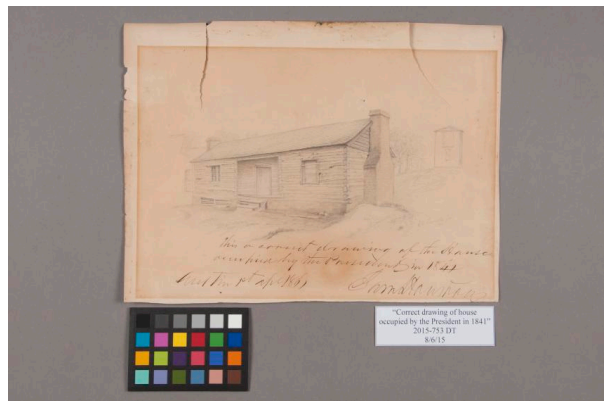 This a correct drawing of the House
occupied by the President in 1841
Austin
"Correct drawing of house
occupied by the President in 1841"
2015-753 DT
8/6/15